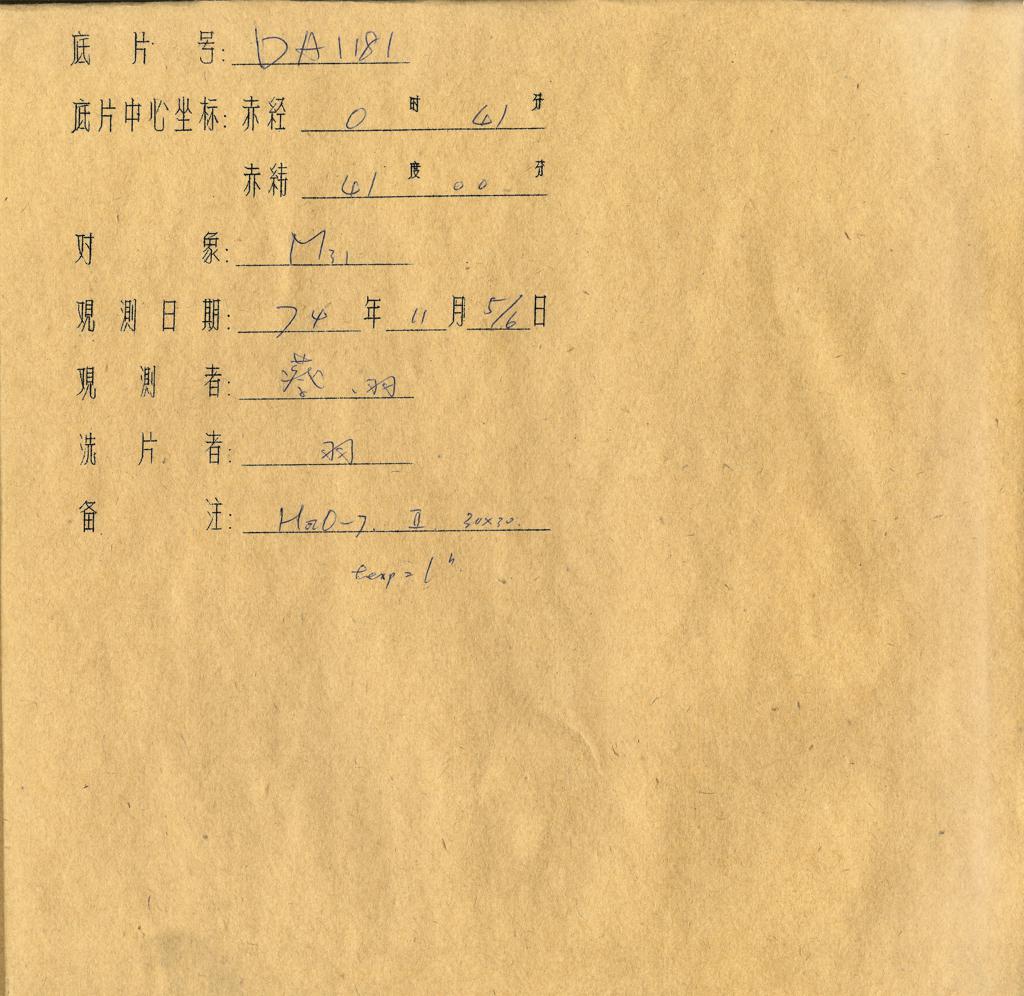 底片号: DA1181
底片中心坐标: 赤经 0 时 41 分
赤纬 41 度 00 分
对象: M31
观测日期: 74 年 11 月 5/6 日
观测者: 蔡、羽
洗片者: 羽
备注: HaO-7. II 30×30.
texp = 1h